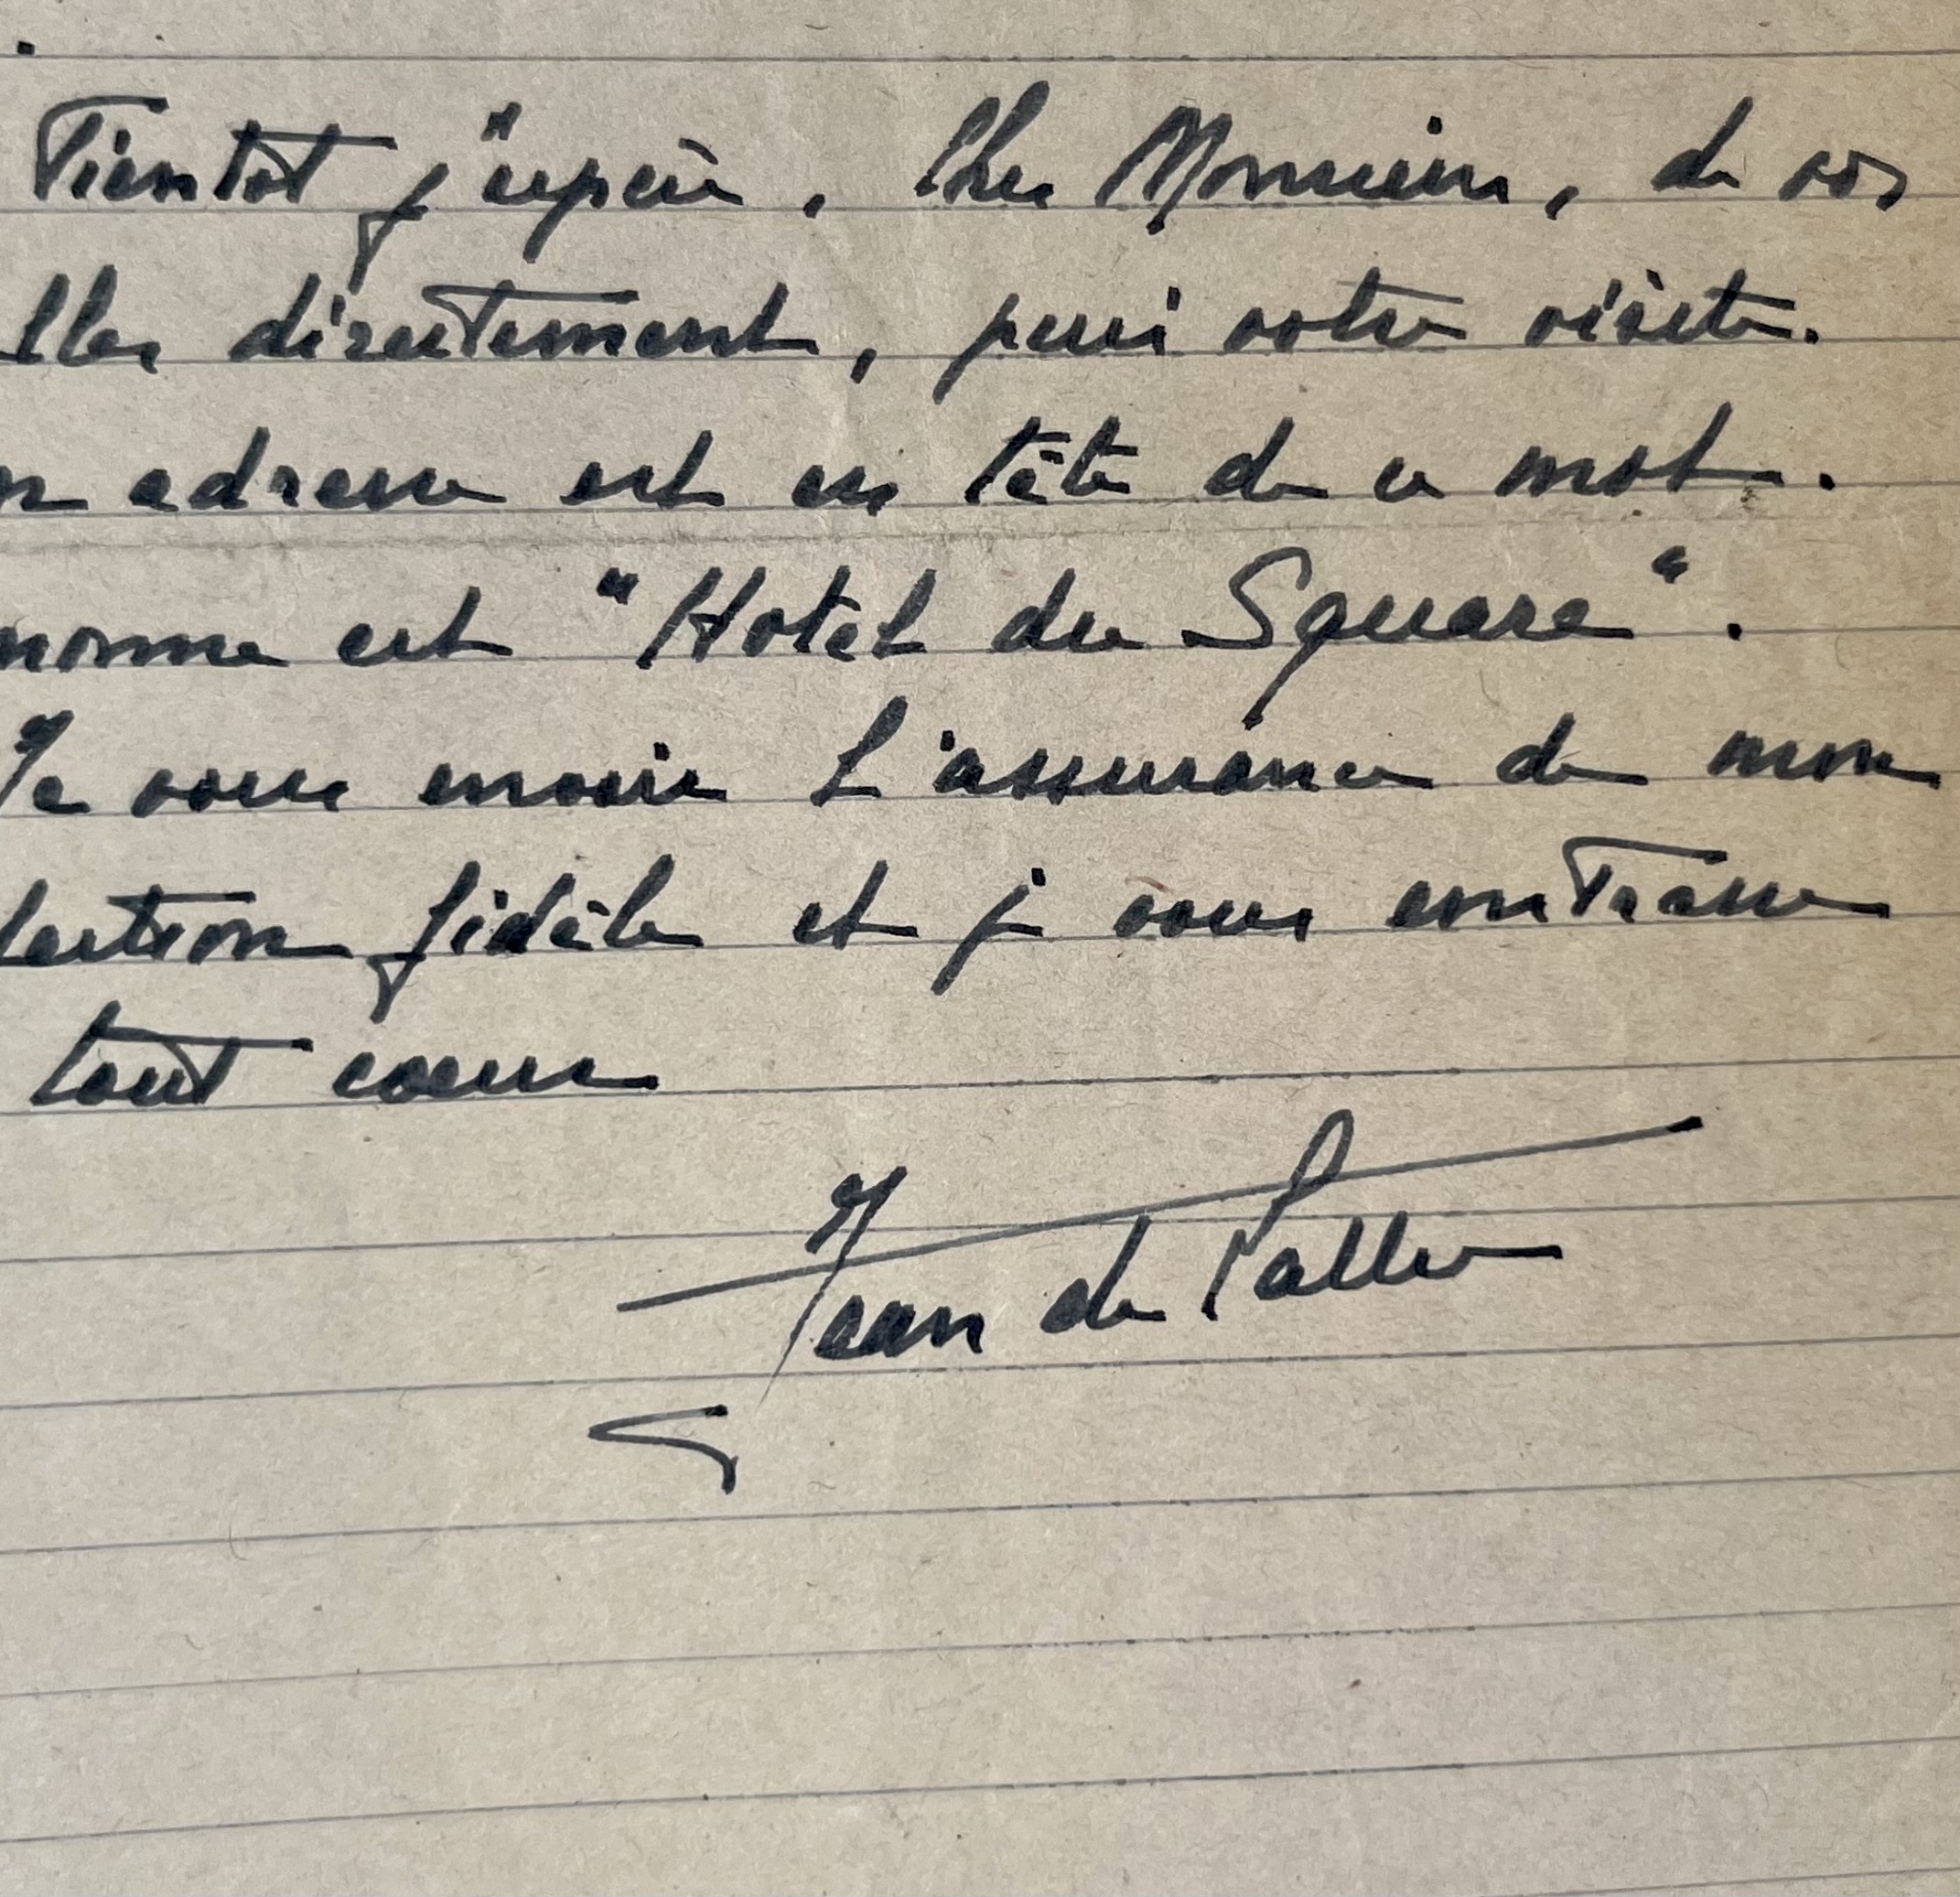 Bientôt j'espère, Cher Monsieur, de vos
lles directement, puis votre visite.
n adresse est en tête de ce mot.
nomme est "Hotel du Square".
Je vous envoie l'assurance de mon
fection fidèle et je vous embrasse
tout coeur
Jean de